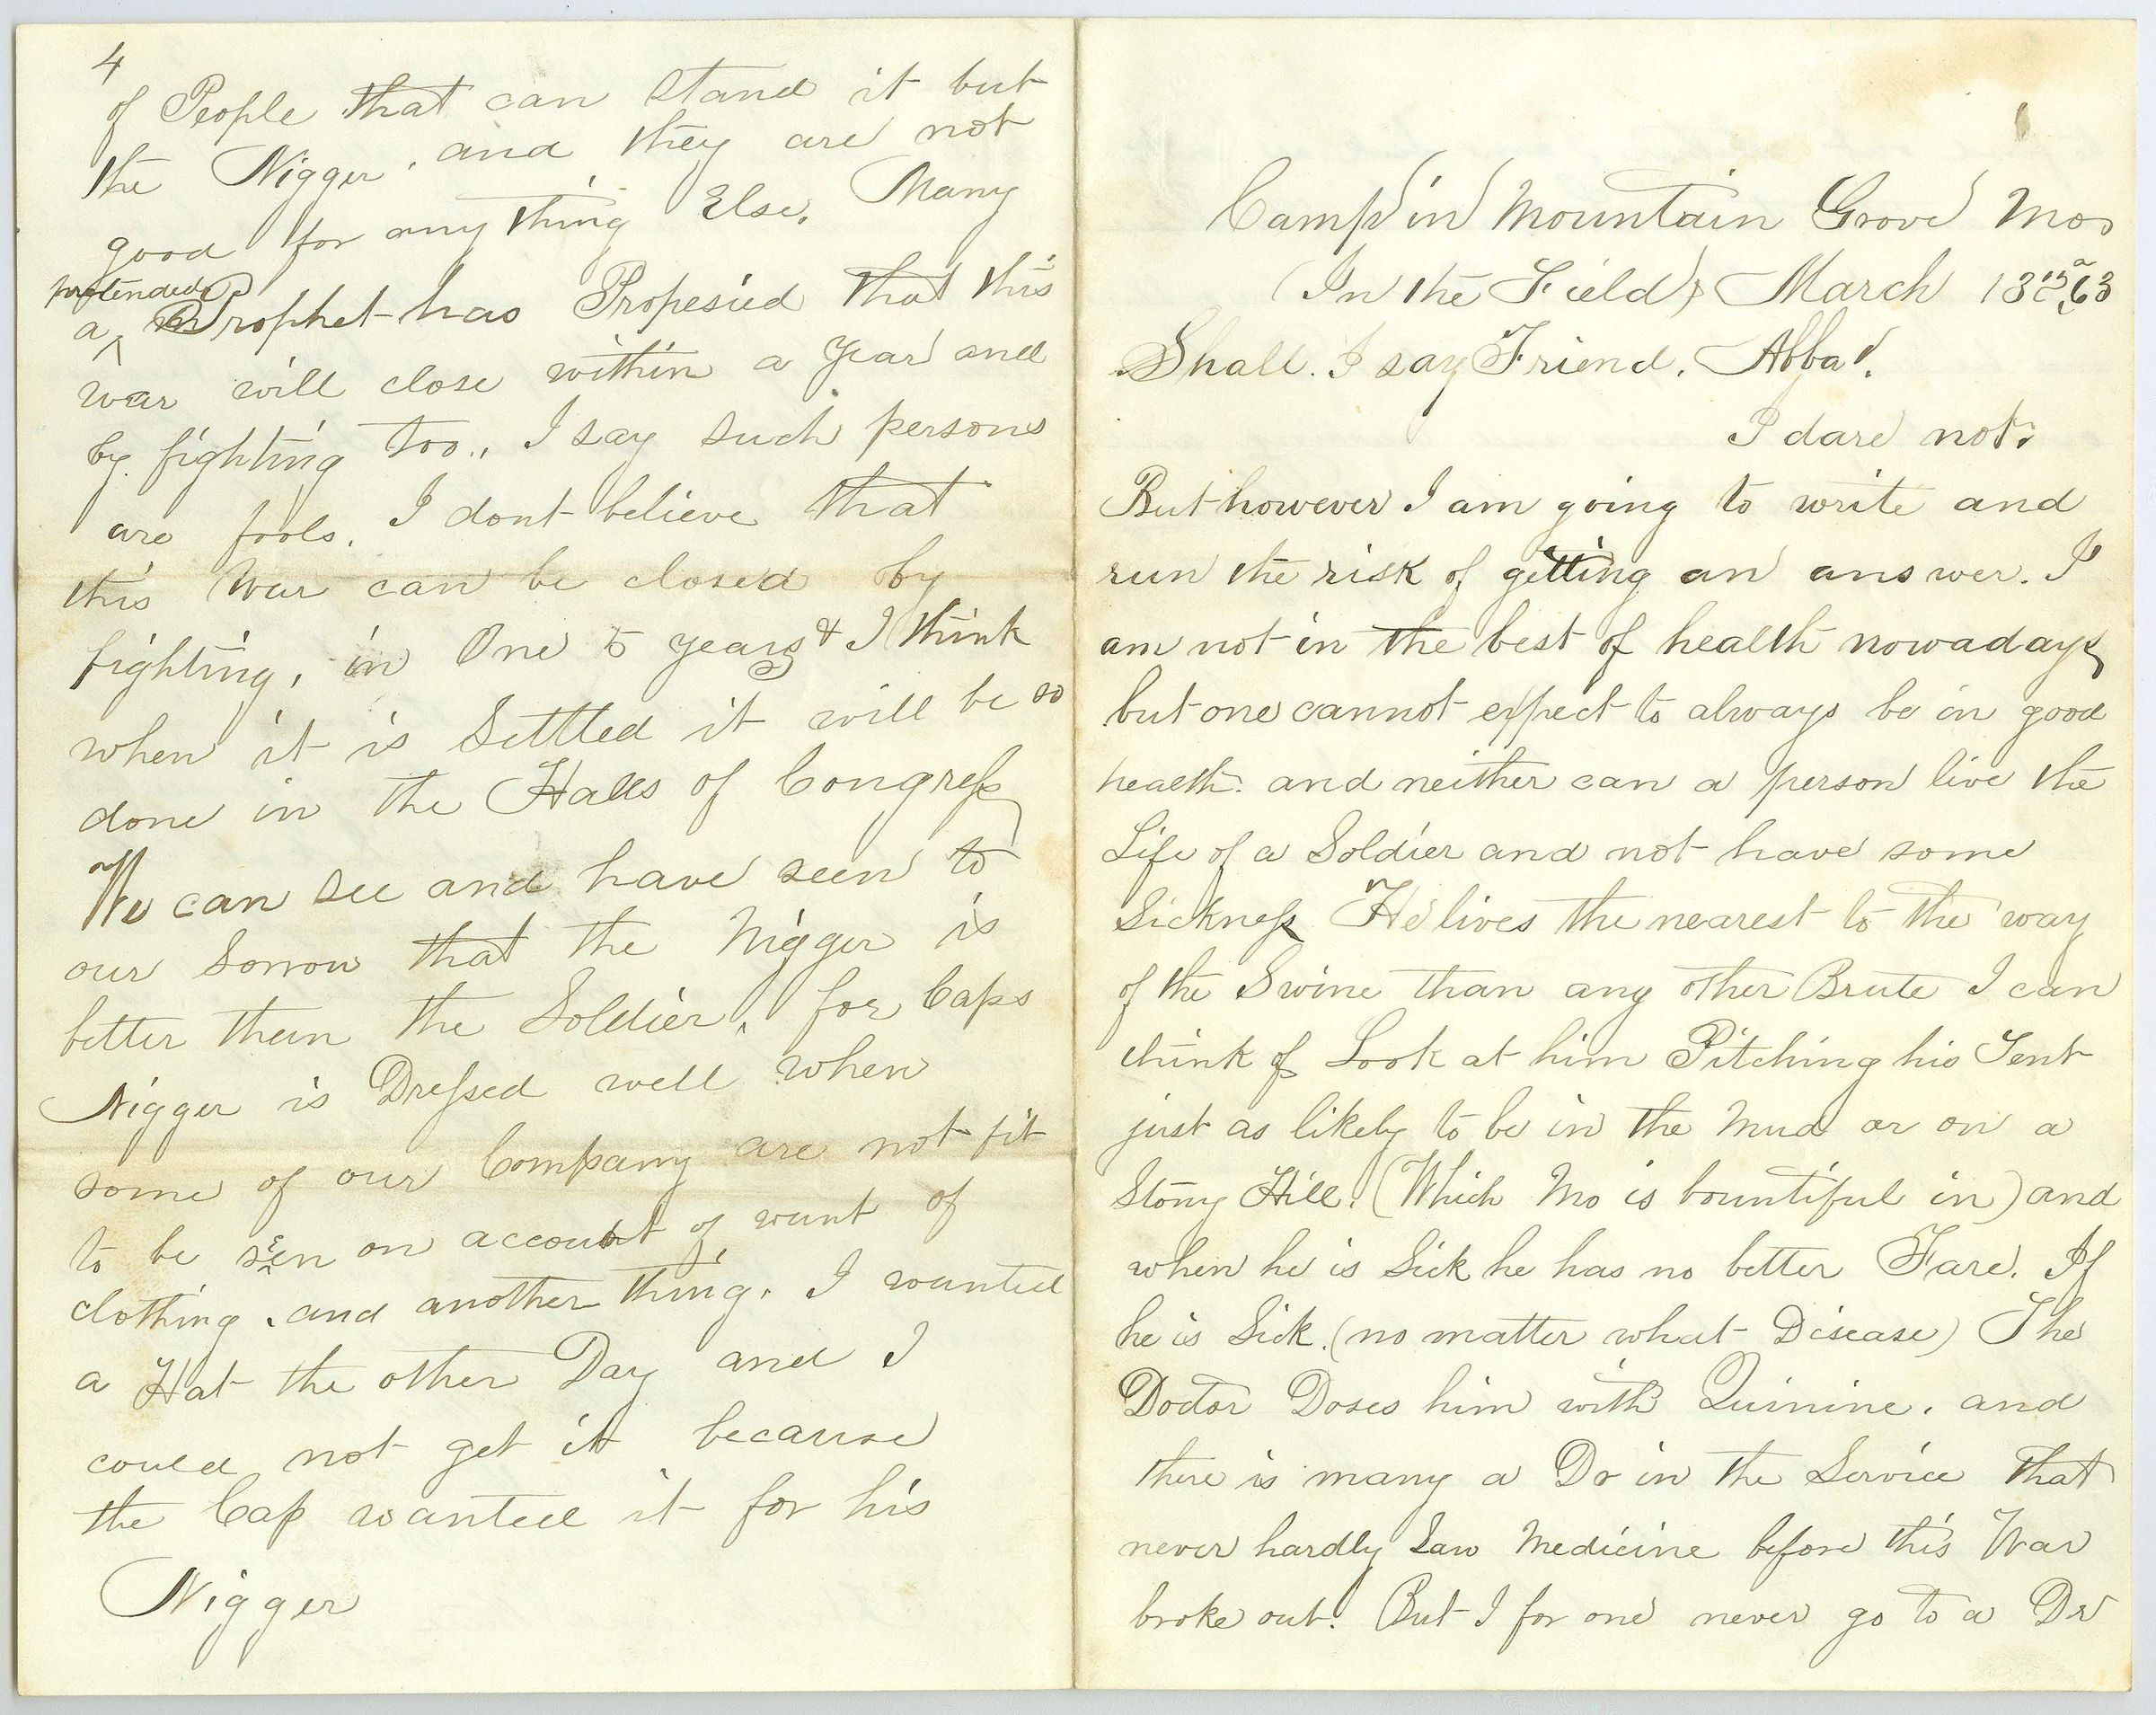 4
of People that can stand it but
the Nigger, and they are not
good for any thing Else. Many
a pretended Prophet has Propesied that this
war will close within a year and
by fighting too., I say such persons
are fools. I dont believe that
this War can be closed by
fighting, in One 5 years & I think
when it is Settled it will be so
done in the Halls of Congress
We can see and have seen to
our Sorrow that the Nigger is
better than the Soldier, for Caps
Nigger is Dressed well when
some of our Company are not fit
to be seen on account of want of
clothing. and another thing. I wanted
a Hat the other Day and I
could not get it because
the Cap wanted it for his
Nigger
1
Camp in Mountain Grove Mo
(In the Field) March 13th 63
Shall. I say Friend. Abba!.
I dare not.
But however I am going to write and
run the risk of getting an answer. I
am not in the best of health nowadays
but one cannot expect to always be in good
health. and neither can a person live the
Life of a Soldier and not have some
Sickness He lives the nearest to the way
of the Swine than any other Brute I can
think of Look at him Pitching his Tent
just as likely to be in the Mud or on a
Stony Hill. (Which Mo is bountiful in) and
when he is Sick he has no better Fare. If
he is Sick. (no matter what Disease) The
Doctor Doses him with Quinine. and
there is many a Dr in the Service that
never hardly Saw Medicine before this War
broke out. But I for one never go to a Dr